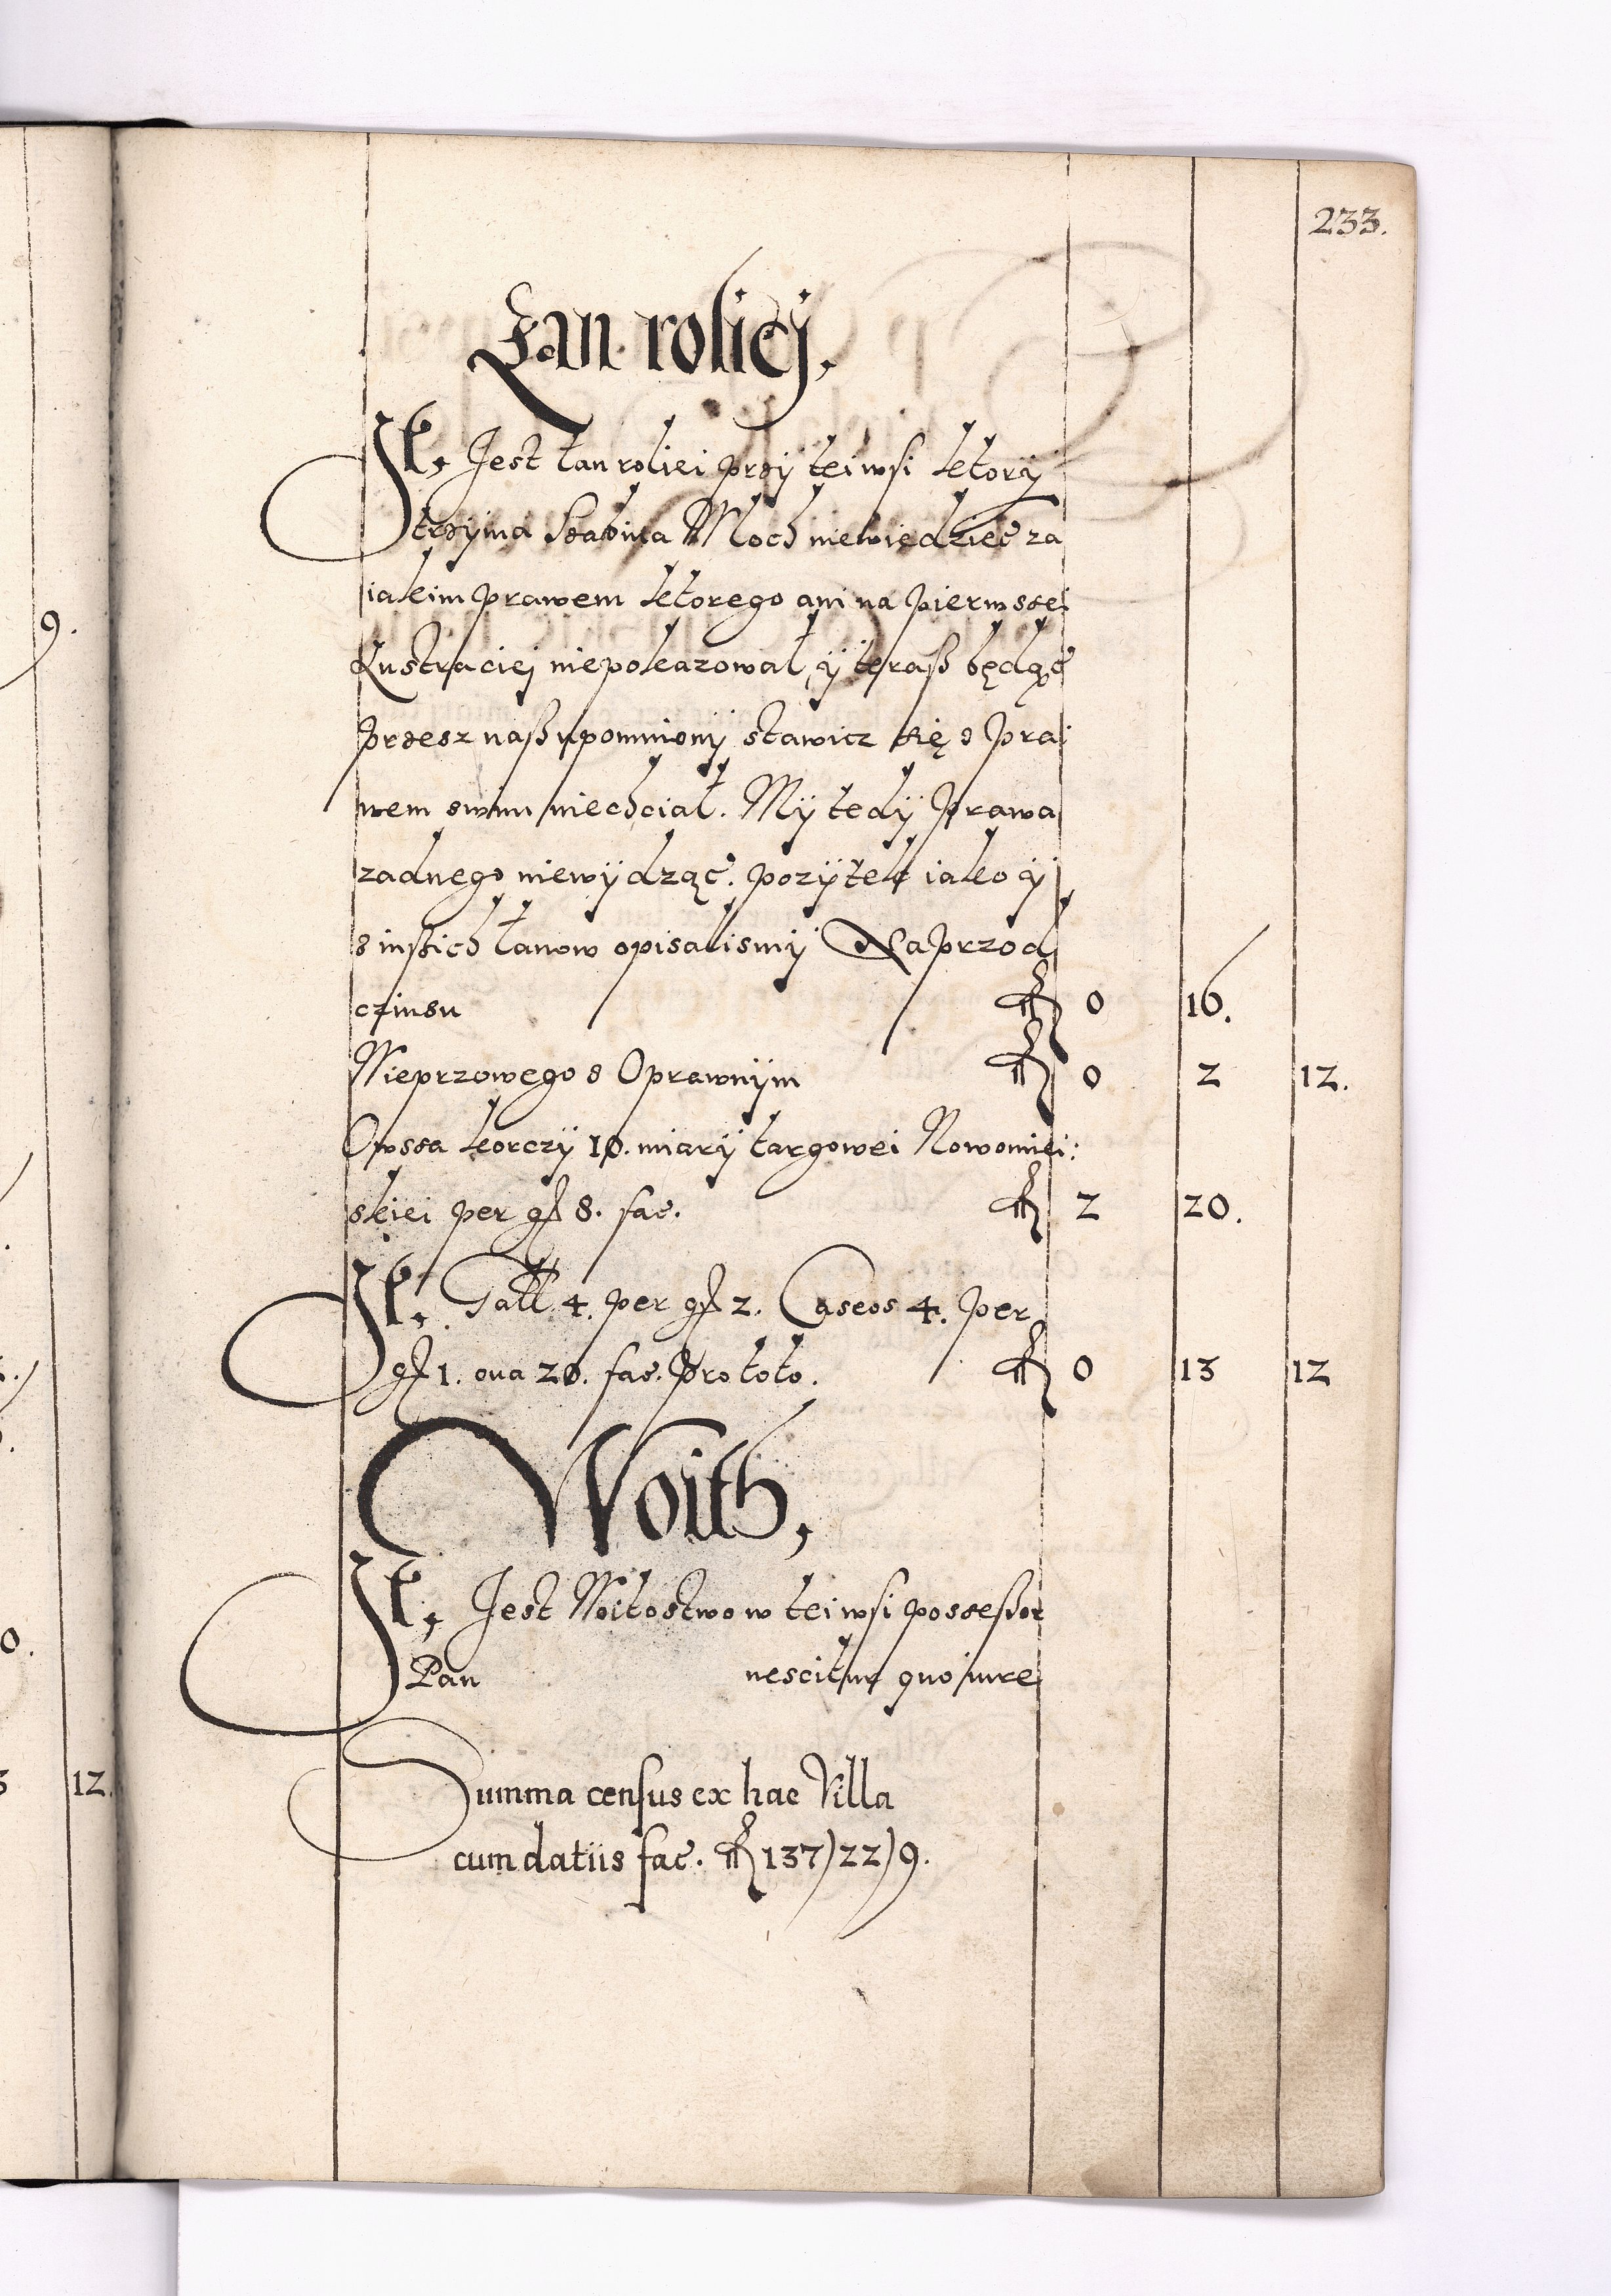 233.
Łan roliej.
It, Jest łan roliei przÿ tei wsi ktorÿ
trzÿma Szabina Moch niewiedzieć za
iakim prawem ktorego ani na pierwssei
Lustraciej niepokazował, ÿ teraß będąc
przesz naß upomnionÿ stawicz się s pra
wem swim niechciał. Mÿ tedÿ prawa
zadnego niewÿdząc. pozÿtek iako ÿ
s inßich łanow opisalismÿ Naprzod
czinsu fl 0 16.
Wieprzowego s Oprawnÿm fl 0 2 12.
Owssa korczÿ 10. miarÿ targowei Nowomiei:
skiei per gr 8. fac. fl 2 20.
It. Gall. 4. per gr 2. Caseos 4. per
gr 1. oua 20. fac. pro toto. fl 0 13 12
Woith,
It, Jest Woitostwo w tei wsi possessor
Pan nescitur quo iure
Summa census ex hac Villa
cum datiis fac. fl 137)22)9.
9.
0.
12.